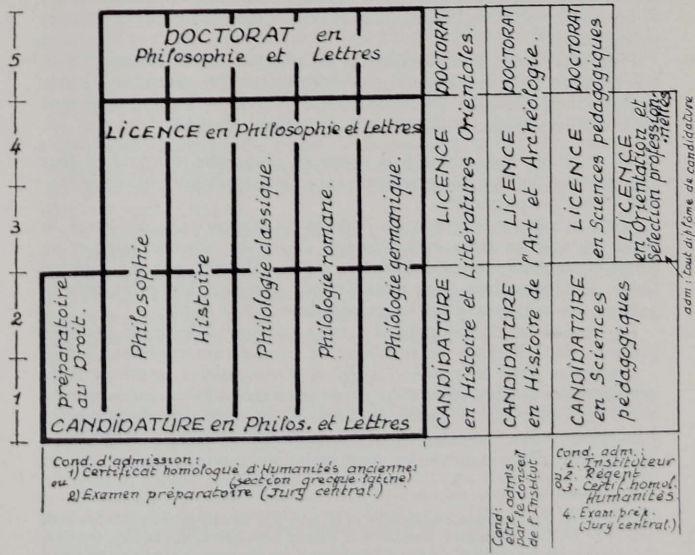 5
4
3
2
1
DOCTORAT en
Philosophie et Lettres
LICENCE en Philosophie et Lettres
préparatoire
au Droit.
Philosophie
Histoire
Philologie classique.
Philologie romane.
Philologie germanique.
CANDIDATURE en Philos. et Lettres
DOCTORAT
LICENCE
CANDIDATURE
en Histoire et Littératures Orientales.
DOCTORAT
LICENCE
CANDIDATURE
en Histoire de l'Art et Archéologie.
DOCTORAT
LICENCE
en Sciences pédagogiques
CANDIDATURE
en Sciences
pédagogiques
LICENCE
en Orientation et
Sélection profession-
nelles
adm: tout diplôme de candidature
Cond. d'admission:
1) Certificat homologué d'Humanités anciennes
ou (section grecque-latine)
2) Examen préparatoire (Jury central.)
Cond:
etre admis
par le conseil
de l'Institut
Cond. adm.:
1. Instituteur
ou 2. Régent
3. Certif. homol.
Humanités
4. Exam. prép.
(Jury central.)